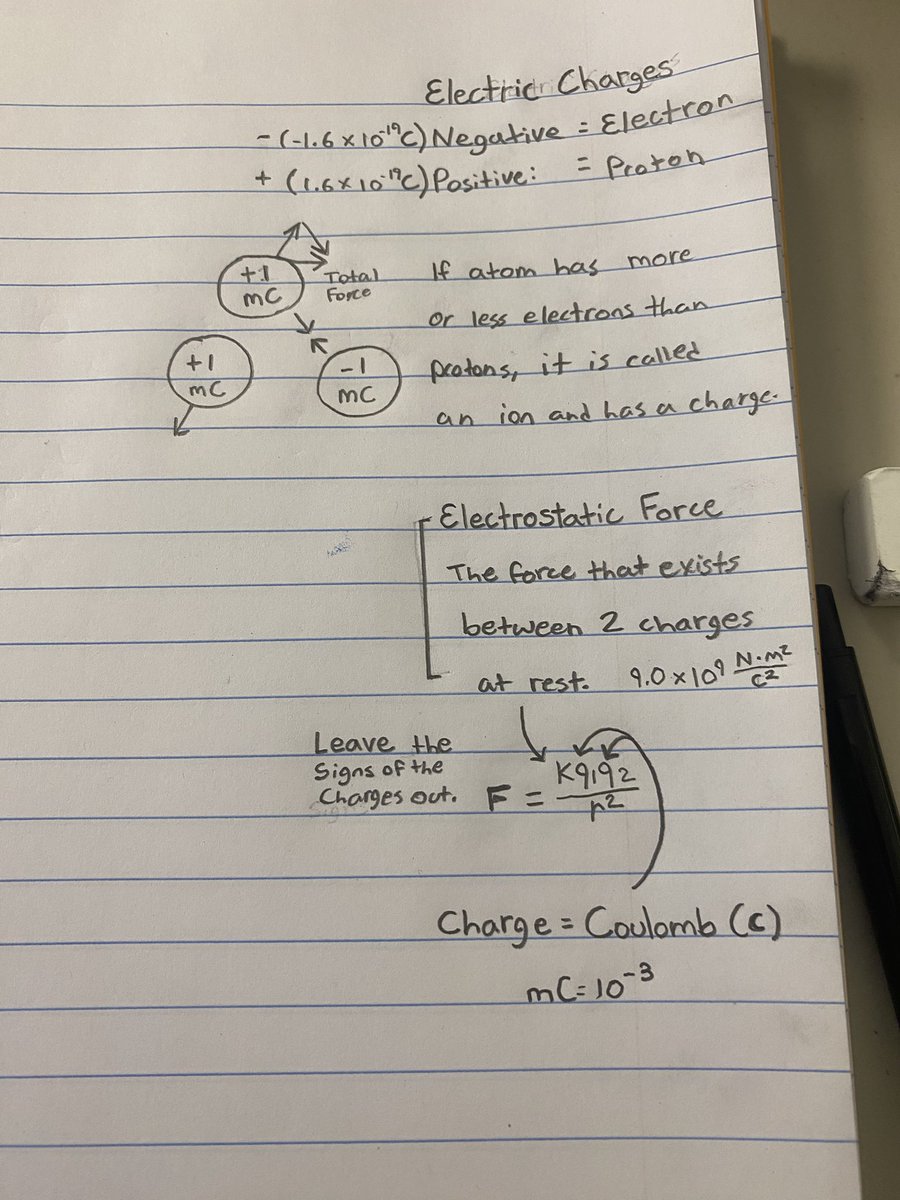 Electric Charges
- (-1.6 x 10⁻¹⁹C) Negative = Electron
+ (1.6 x 10⁻¹⁹C) Positive: = Proton
+1
mC
Total
Force
+1
mC
-1
mC
If atom has more
or less electrons than
protons, it is called
an ion and has a charge.
Electrostatic Force
The force that exists
between 2 charges
at rest. 9.0 x 10⁹ N·m²/C²
Leave the
Signs of the
Charges out.
F = Kq₁q₂/r²
Charge = Coulomb (C)
mC = 10⁻³